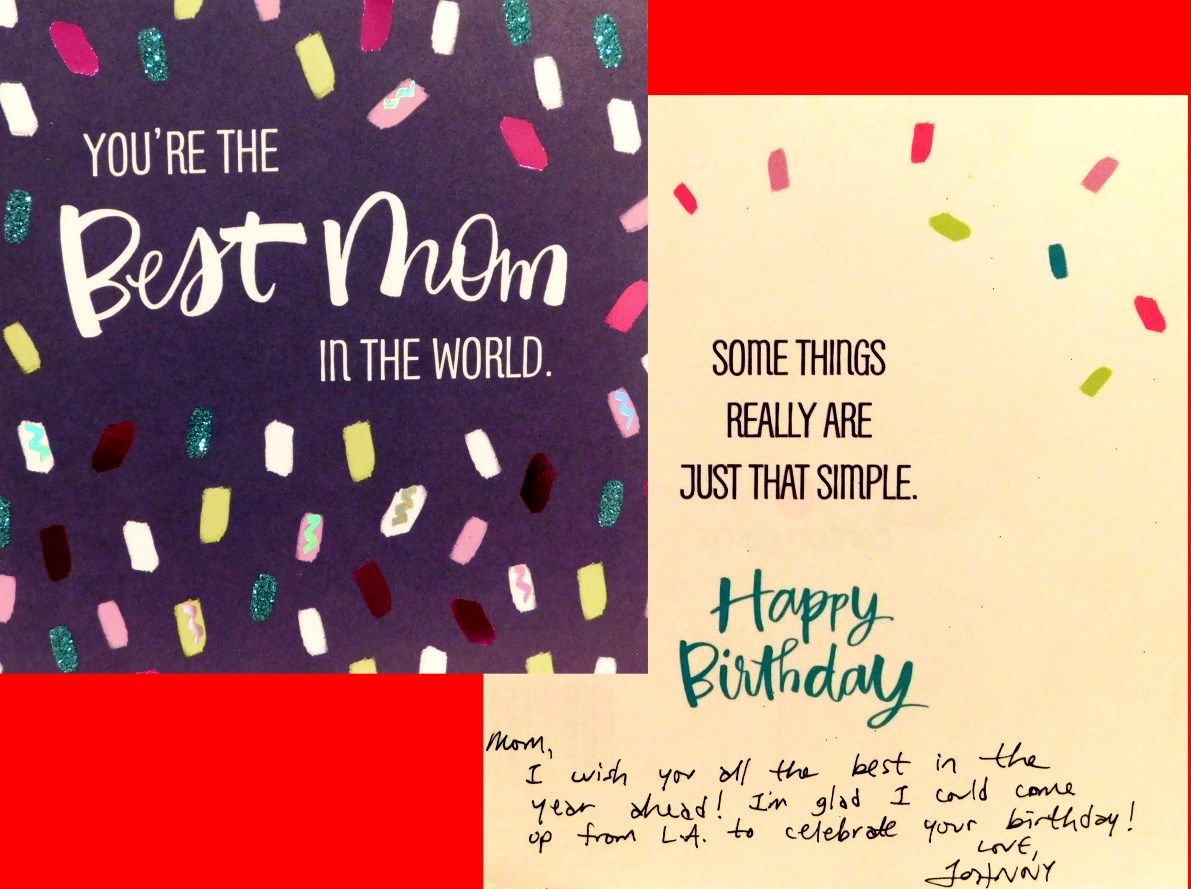 YOU'RE THE
Best Mom
IN THE WORLD.
SOME THINGS
REALLY ARE
JUST THAT SIMPLE.
Happy
Birthday
Mom,
I wish you all the best in the
year ahead! I'm glad I could come
up from L.A. to celebrate your birthday!
LOVE,
JOHNNY